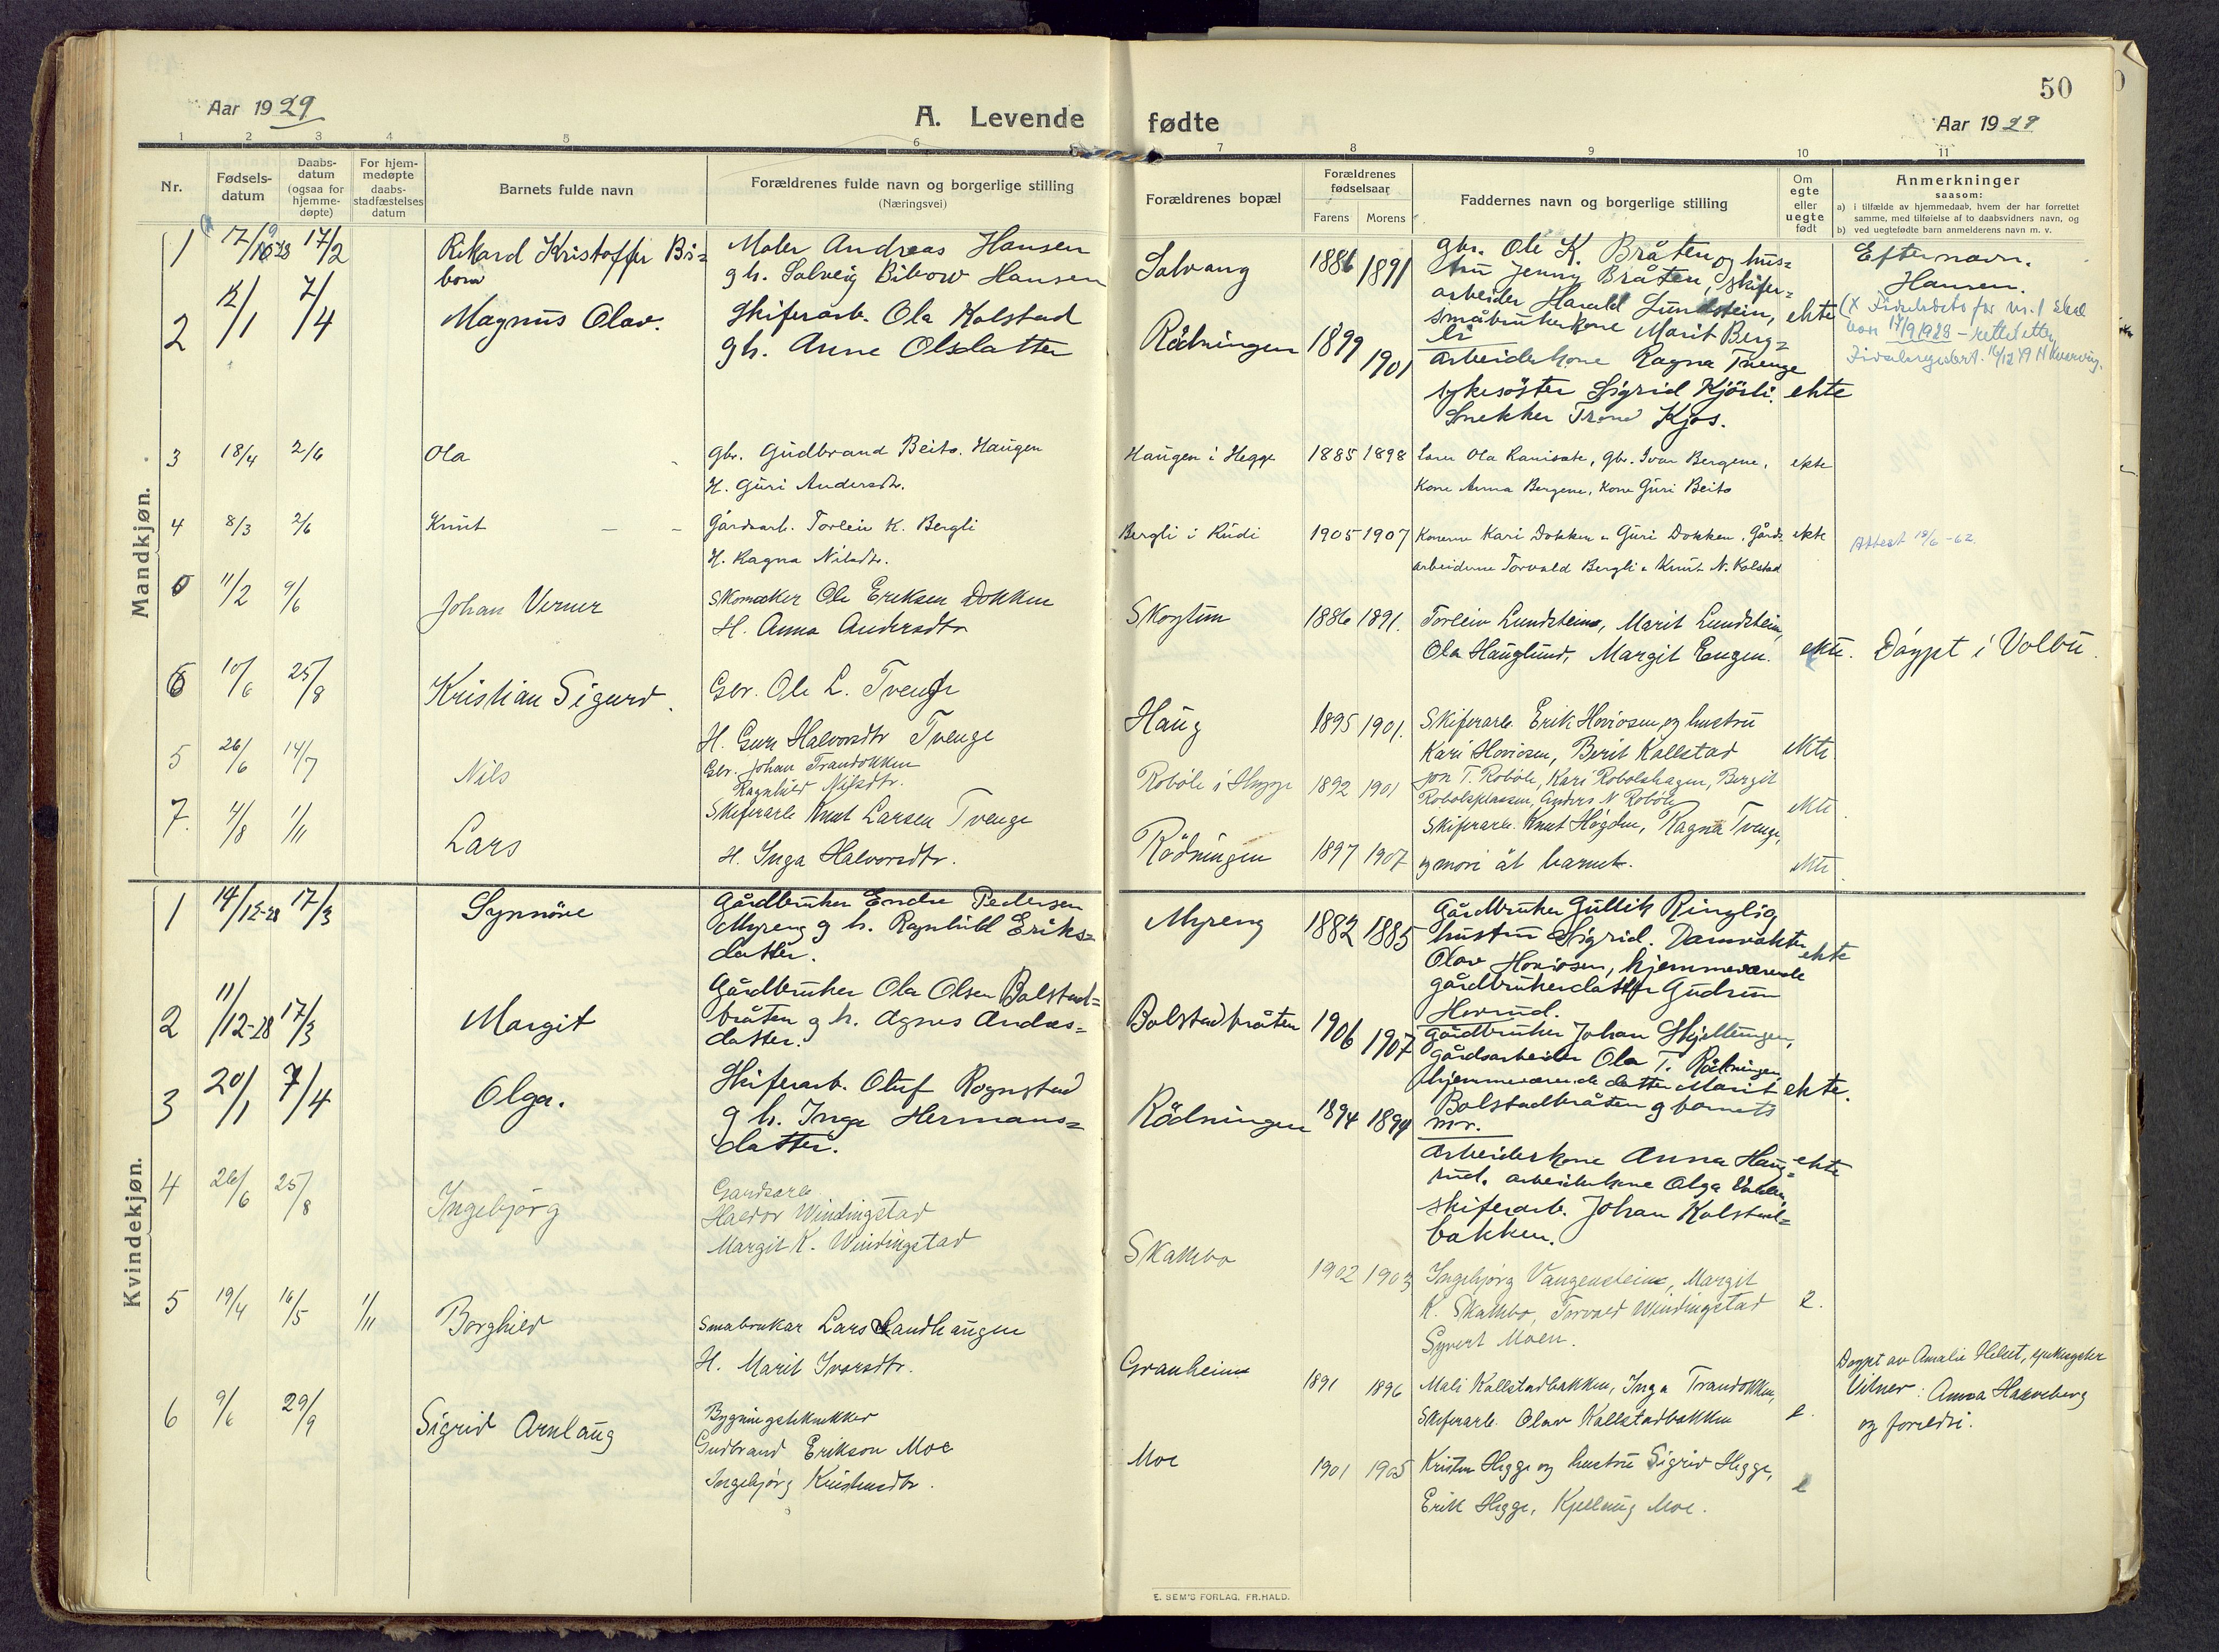 50
Aar 1929
A. Levende
fødte
Aar 1929
1 2 3 4 5 6
7 8 9 10 11
Nr.
Fødsels-
datum
Daabs-
datum
(ogsaa for
hjemme-
døpte)
For hjem-
medøpte
daabs-
stadfæstelses
datum
Barnets fulde navn
Forældrenes fulde navn og borgerlige stilling
(Næringsvei)
Forældrenes bopæl
Forældrenes
fødselsaar
Farens Morens
Faddernes navn og borgerlige stilling
Om
egte
eller
uegte
født
Anmerkninger
saasom:
a) i tilfælde av hjemmedaab, hvem der har forrettet
samme, med tilføielse af to daabsvidners navn, og
b) ved uegtefødte barn anmelderens navn m. v.
Mandkjøn.
1 17/2 Rikard Kristoffer Bi=
born
Maler Andreas Hansen
g h. Solveig Bibow Hansen
Solvang 1886 1891
gbr. Ole K. Bråten og hus=
tru Jenny Bråten, skifer=
arbeider Harald Lundstein,
småbrukerkone Marit Berg=
li
ekte
Efternavn.
Hansen.
17/9 1928 – rettet etter
2 12/1 7/4 Magnus Olav.
Skiferarb. Ola Kolstad
g h. Anne Olsdatter
Rödningen 1899 1901
Arbeiderkone Ragna Tvenge
sykesöster Sigrid Kjörli.
Snekker Trond Kjos.
ekte
3 18/4 2/6 Ola
gbr. Gudbrand Beito. Haugen
H. Guri Andersdtr.
Haugen i Hegge 1885 1898
Ola Ranisate, gbr. Ivar Bergene,
Kone Anna Bergene, Kone Guri Beito
ekte
4 8/3 2/6 Knut
Gårdsarb. Torleiv K. Bergli
H. Ragna Nilsdtr.
Bergli i Rudi 1905 1907
Konerne Kari Dokken & Guri Dokken. Gårds
arbeiderne Torvald Bergli & Knut N. Kolstad
ekte
Attest 15/6 -62.
5 11/2 9/6 Johan Verner
Skomaker Ole Eriksen Dokken
H. Anna Andersdtr
Skogtun 1886 1891.
Torleiv Lundstein, Marit Lundstein,
Ola Hauglund, Margit Engen.
ekte.
Döypt i Volbu.
6 10/6 25/8 Kristian Sigurd.
Gbr. Ole L. Tvenge
H. Guri Halvorsdtr Tvenge
Haug 1895 1901.
Skiferarb. Erik Hoviosen og hustru
Kari Hoviosen, Berit Kollstad
ekte
5 26/6 14/7 Nils
Gbr. Johan Trandokken
Ragnhild Nilsdtr.
Roböle i Hegge 1892 1901
Jon T. Roböle, Kari Robolshagen, Bergit
Robolsplassen, Anders N Roböle
ekte
7. 4/8 1/11 Lars
Skiferarb Knut Larsen Tvenge
H. Inga Halvorsdtr.
Rödningen 1897 1907
Skiferarb. Knut Högden, Ragna Tvenge,
og mori åt barnet.
ekte
Kvindekjøn.
1 14/12-28 17/3 Synnöve
Gårdbruker Endre Pedersen
Myreng g h. Ragnhild Eriks=
datter.
Myreng 1882 1885
Gårdbruker Gullik Ringlig
hustru Sigrid. Damvokter
Olav Hoviosen, hjemmeværende
gårdbrukerdatter Gudrun
Hovrud.
ekte
2 11/12-28 17/3 Margit
Gårdbruker Ola Olsen Bolstad=
bråten g h. Agnes Andes=
datter.
Bolstadbråten 1906 1907
Gårdbruker Johan Skjellungen,
gårdsarbeider Ola T. Rödningen,
hjemmeværende datter Marit
Bolstadbråten g barnets
mor.
ekte.
3 20/1 7/4 Olga.
Skiferarb. Oluf Rognstad
g h. Inga Hermans=
datter.
Rödningen 1894 1894
Arbeiderkone Anna Haug=
rud, arbeiderkone Olga
skiferarb. Johan Kolstad=
bakken.
ekte
4 26/6 25/8 Ingebjörg
Gardsarb
Haldor Windingstad
Margit K. Windingstad
Skattebo 1902 1903
Ingebjörg Vangensteine, Margit
K. Skattebo, Torvald Windingstad
Syvert Moen.
e.
5 19/4 16/5 1/11 Borghild
Småbrukar Lars Sandhaugen
H. Marit Ivarsdtr.
Granheim 1891 1896
Mali Kollstadbakken, Inga Trandokken,
Skiferarb. Olav Kollstadbakken
e.
Döypt av Amalie Helset, sjukesyster
Vitner: Anna Hakeberg
og foreldri.
6 9/6 29/9 Sigrid Arnlaug
Bygningsteknikker
Gudbrand Erikson Moe
Ingebjörg Kristensdtr.
Moe 1901 1905
Kristen Hegge og hustru Sigrid Hegge,
Erik Hegge, Kjellaug Moe.
e
E. SEM'S FORLAG. FR.HALD.